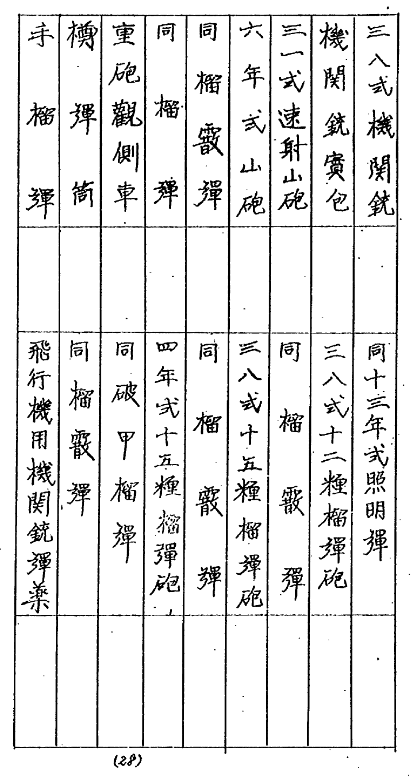 三八式機関銃
機関銃實包
三一式速射山砲
六年式山砲
同榴霰彈
同榴彈
重砲觀側車
樽彈筒
手榴彈
同十三年式照明彈
三八式十二糎榴彈砲
同榴霰彈
三八式十五糎榴彈砲
同榴霰彈
四年式十五糎榴彈砲
同破甲榴彈
同榴霰彈
飛行機用機関銃彈薬
(28)